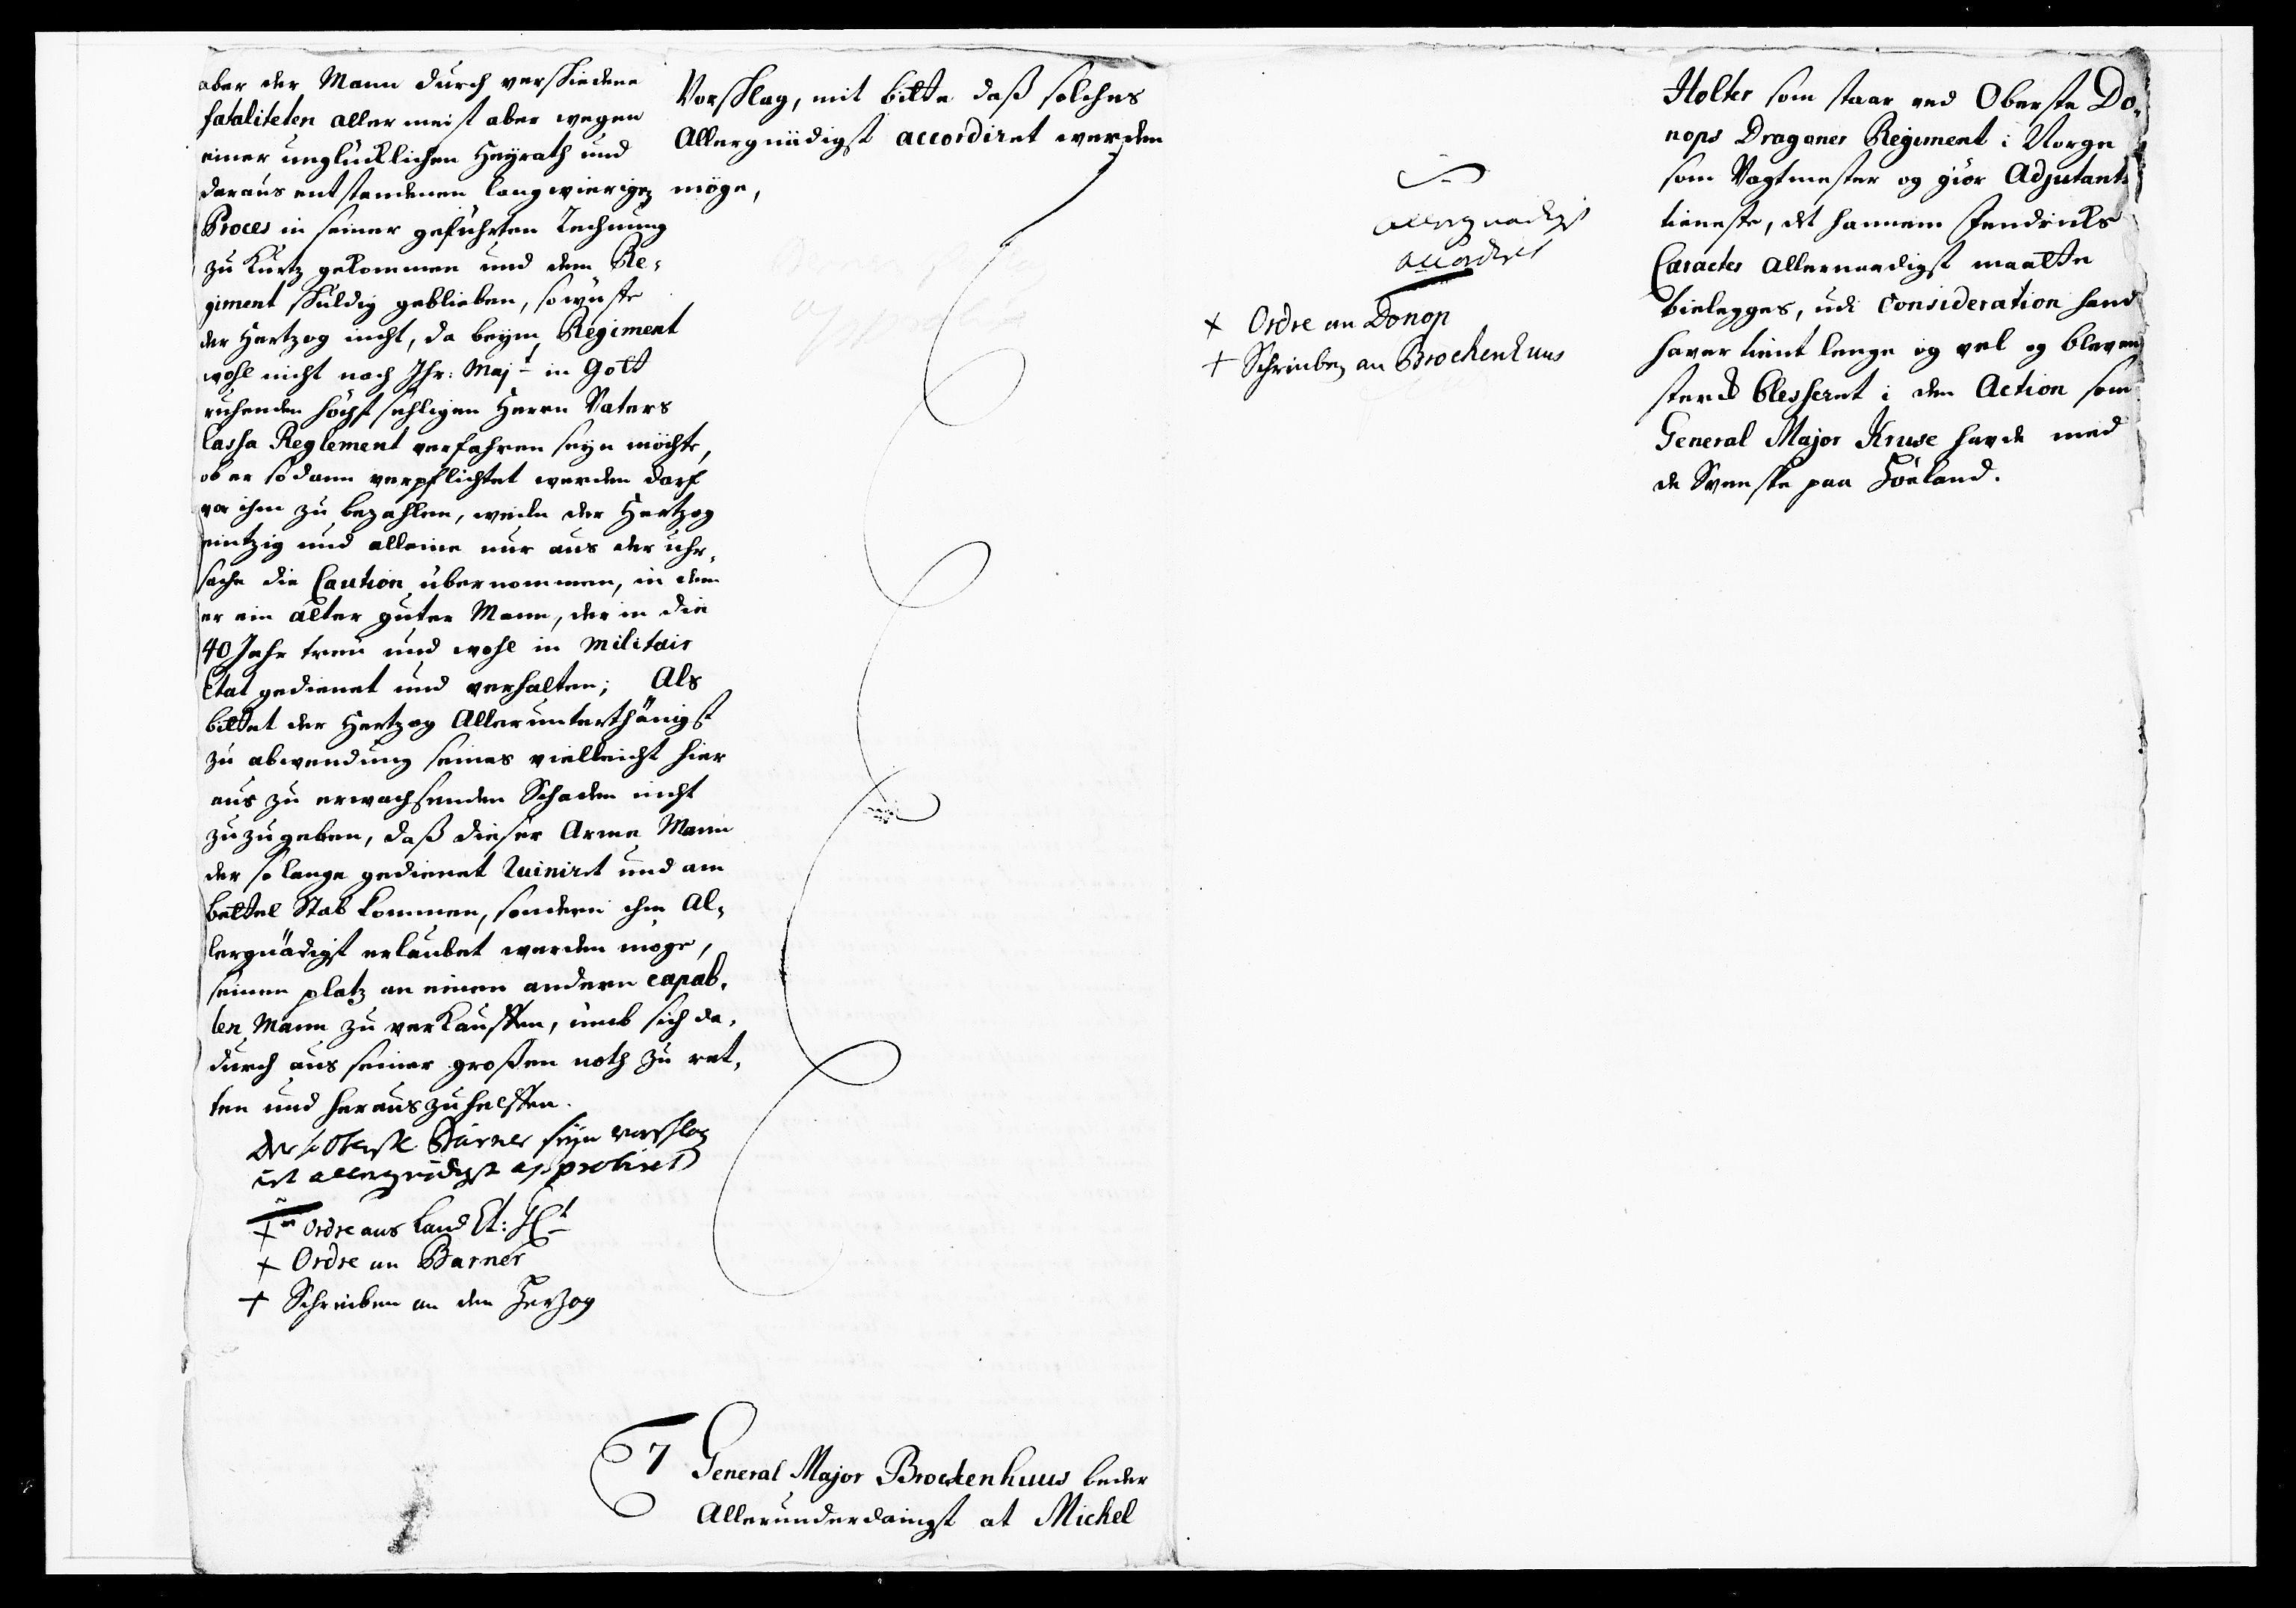 aber der Mann durch verskiedene
fataliteten allermeist aber wegen
einer unglücklichen Heÿrath und
daraus entstandenen langwierigen
Proces in seiner geführten Rechnung
zu Kurtz gekommen und dem Re-
giment skuldig geblieben, so wüste
der Hertzog nicht, da beym Regiment
wohl nicht nach Ihr: Majt in Gott
ruhenden höchst sehligen Herrn Vaters
Cassa Reglement verfahren seyn möchte,
ob er sodann verpflichtet werden darf
vor ihm zu bezahlen, weile der Hertzog
eintzig und alleine nur aus der uhr-
sache die Caution übernommen, in dem
er ein alter guter Mann, der in die
40 Jahr treu und wohl in Militair
Etat gedienet und verhalten; Als
bittet der Hertzog Allerunterthänigst
zu abwendung seines vielleicht hier
aus zu erwachsenden Schaden nicht
zuzugeben, daß dieser Arme Mann
der so lange gedienet Ruiniret und am
bettel Stab kommen, sondern ihm Al-
lergnädigst erlaubet werden möge,
seinen platz an einen andern capab-
len Mann zu verkauffen, umb sich da-
durch aus seiner großen noth zu ret-
ten und herauszuhelffen.
der Oberste Barner seyn vorschlag
ist allergnädigst approbiret
+ Ordre aus Land Et: Gl:t
+ Ordre an Barner
+ Schreiben an den Herzog
Vorsklag, mit bitte daß solches
Allergnädigst accordiret werden
möge,
7 General Major Brockenhuus beder
Allerunderdanigst at Michel
allergnadigst
accordirt
+ Ordre an Donop
+ Schreiben an Brockenhuus
Holter som staar ved Oberste Do-
nops Dragoner Regiment i Norge
som Vagtmester og giör Adjutants
tieneste, det hannem Fendricks
Caracter Allernaadigst maatte
bielegges, udi Consideration hand
haver tient lenge og vel og bleven
sterck blesseret i den Action som
General Major Kruse havde med
de Svenske paa Höeland.